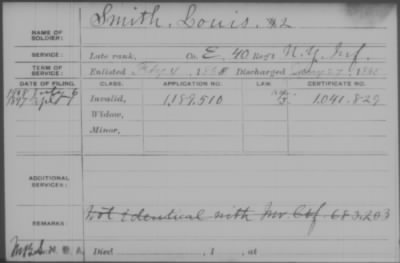 Smith, Louis. #2
NAME OF SOLDIER:
SERVICE: Late rank, Co. E, 40 Reg't N.Y. Inf.
TERM OF SERVICE: Enlisted , 186 Discharged , 186
DATE OF FILING. CLASS. APPLICATION NO. LAW. CERTIFICATE NO.
July 6 Invalid, 1,189.510 1,041.829
Widow,
Minor,
ADDITIONAL SERVICES:
REMARKS: Not identical with Inv. Ctf. 683.203
Died , 1 , at